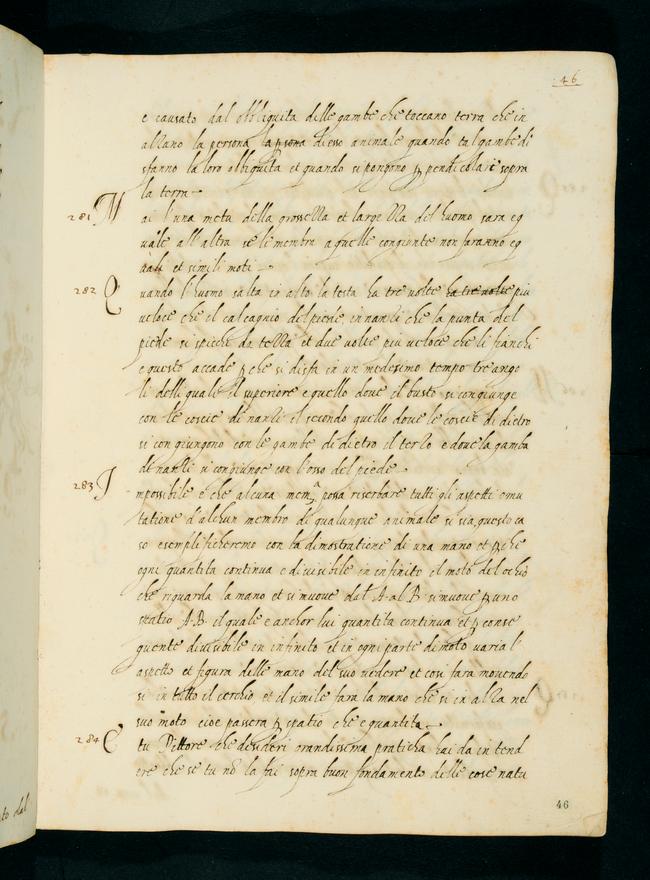 46
e causato dal obbliquita delle gambe che toccano terra che in
alzano la persona la psona di esso animale quando tal gambe di
sfanno la loro obliquita et quando si pongono p pendicolare sopra
la terra
281 Mai l'una metà della grossezza et largezza del huomo sara eq
uale all'altra se li membra a quelle congiunte non faranno eq
uali et simili moti
282 Quando l'huomo salta in alto la testa ha tre volte ha tre volte piu
veloce che il calcagnio del piede innanzi che la punta del
piede si spicchi da terra et due volte piu veloce che li fianchi
e questo accade p che si disfa in un medesimo tempo tre ango
li delli quali il superiore e quello dove il busto si congiunge
con le coscie dinanzi il secondo quello dove le coscie di dietro
si congiungono con le gambe di dietro il terzo e dove la gamba
dinanzi si congiunge con l'osso del piede
283 Impossibile e che alcuna mem.a possa riserbare tutti gli aspetti o mu
tatione d'alchun membro di qualunque animale si sia questo ca
so esemplificheremo con la dimostratione di una mano et p che
ogni quantita continua e divisibile in infinito il moto del ochio
che riguarda la mano et si muove dal A al B si muove p uno
spatio A B il quale e anchor lui quantita continua et p conse
guente divisibile in infinito et in ogni parte di moto varia l'
aspetto et figura delle mano del suo vedere et cosi fara movendo
si in tutto il cerchio et il simile fara la mano che si in alza nel
suo moto cioe passera p spatio che e quantita
284 E tu Pittore che desideri grandissima praticha hai da intend
ere che se tu nō la fai sopra buon fondamento delle cose natu
46